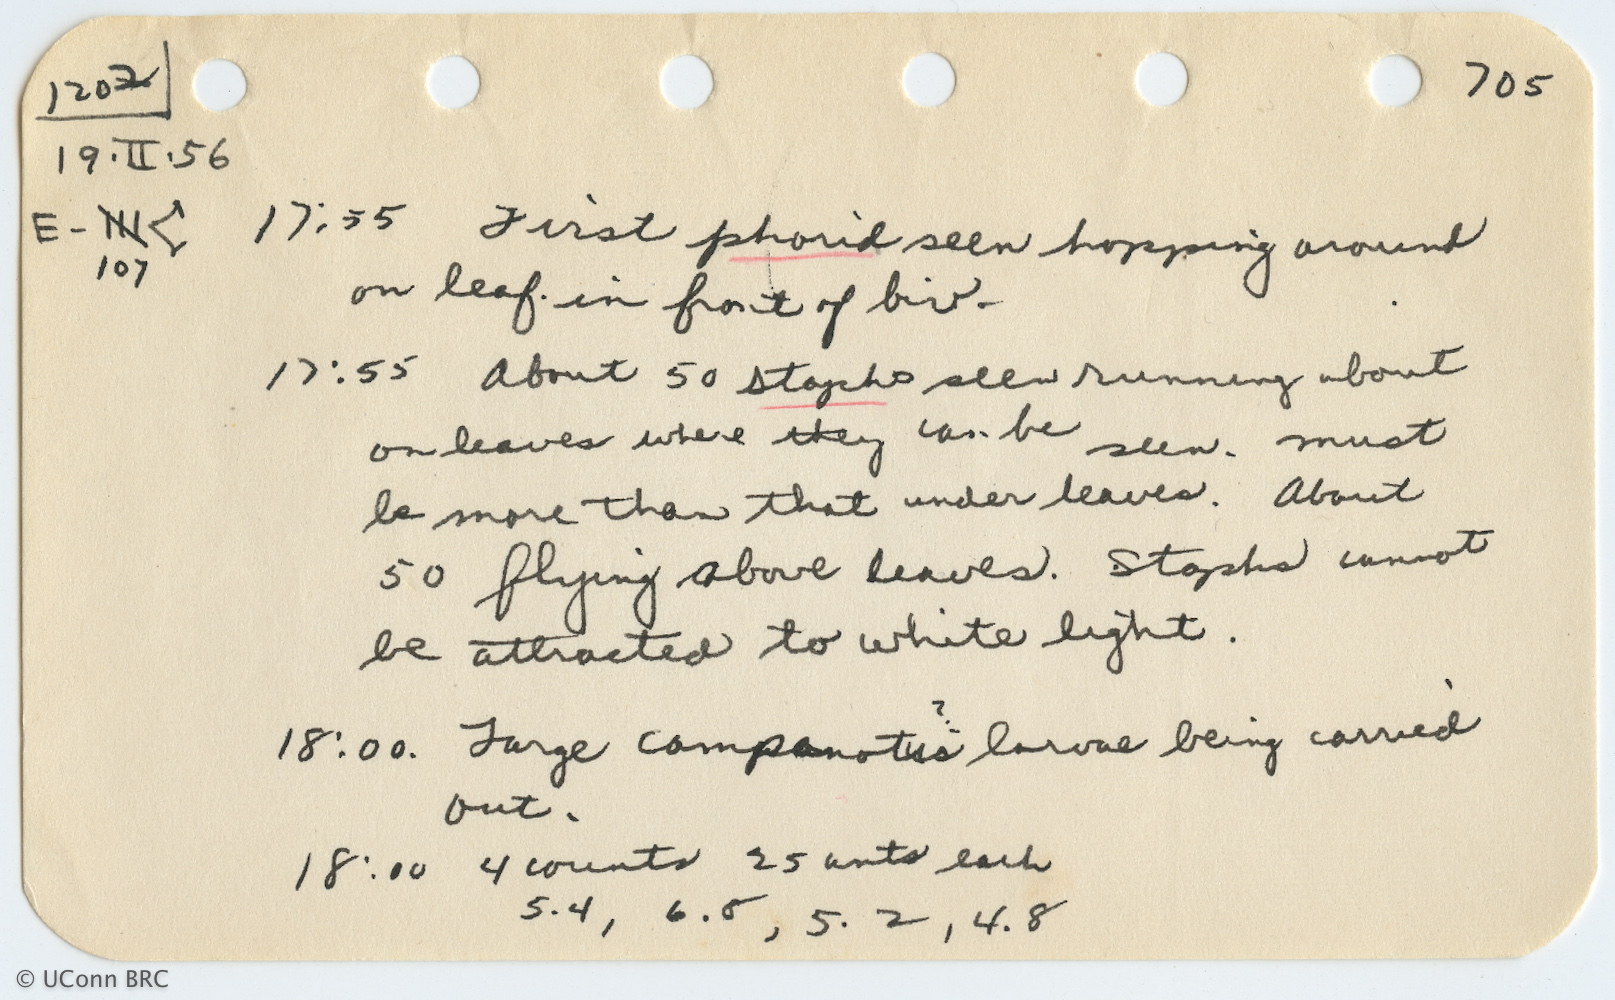 1202
705
19.II.56
E-
107
17:55 First phorid seen hopping around
on leaf in front of biv.
17:55 About 50 staphs seen running about
on leaves where they can be seen. Must
be more than that under leaves. About
50 flying above leaves. Staphs cannot
be attracted to white light.
?
18:00. Large camponotus larvae being carried
out.
18:00 4 counts 25 ants each
5.4, 6.8, 5.2, 4.8
© UConn BRC